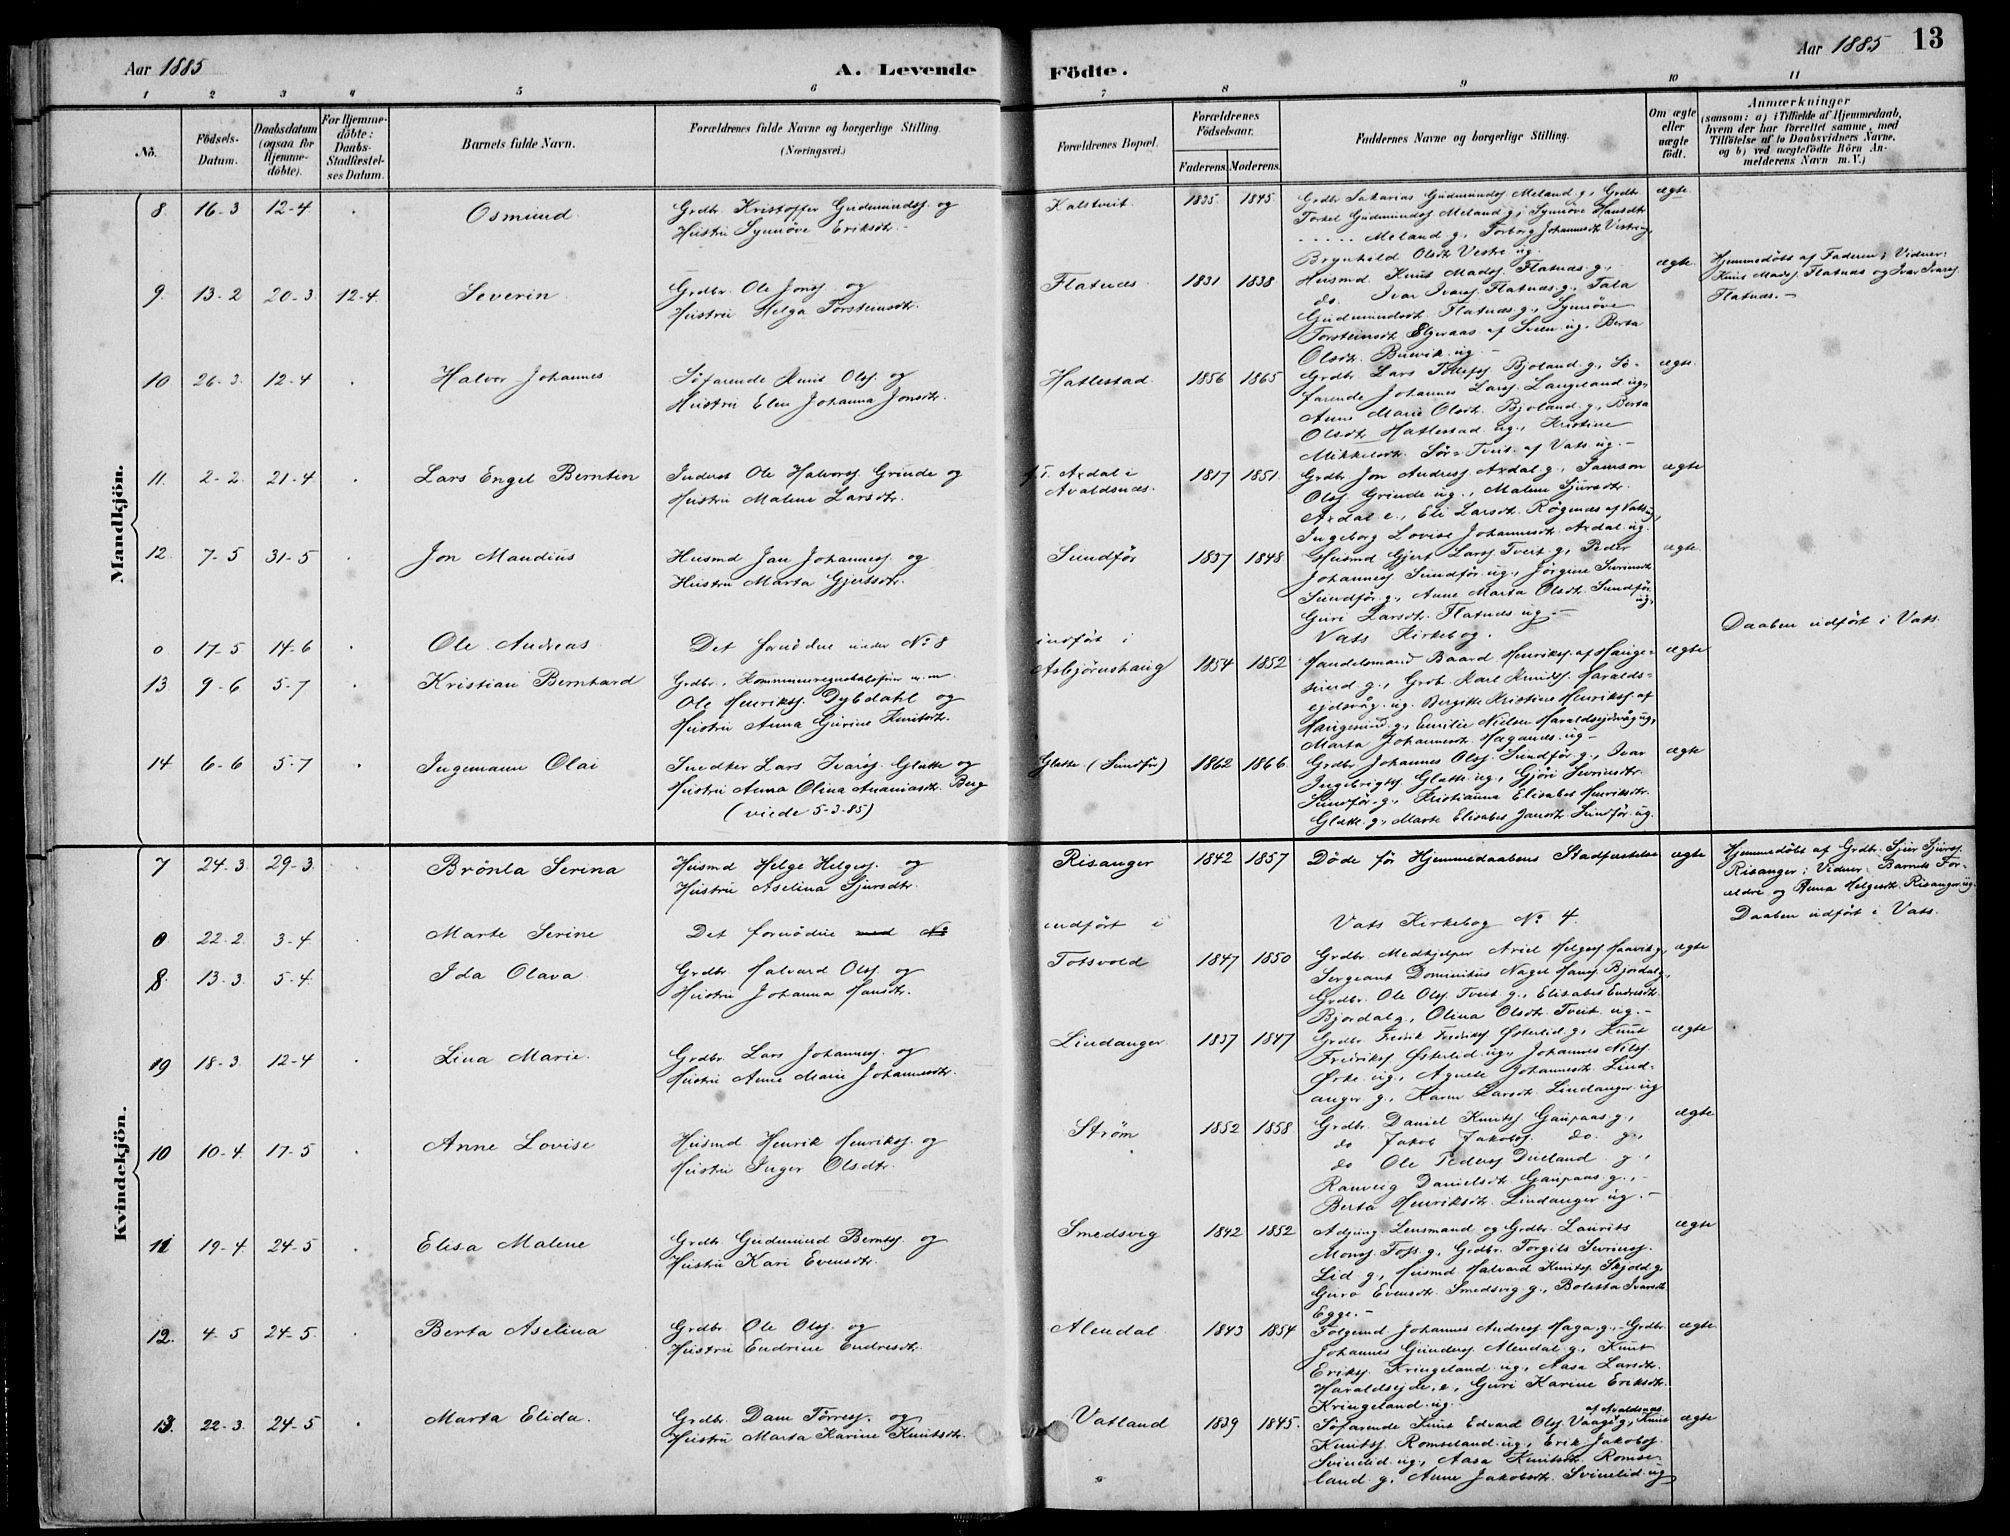 Aar 1885
A. Levende
Födte.
Aar 1885
13
1 2 3 4 5 6 7 8 9 10 11
No.
Födsels-
Datum.
Daabsdatum
(ogsaa for
Hjemme-
döbte).
For Hjemme-
döbte:
Daabs-
Stadfæstel-
ses Datum.
Barnets fulde Navn.
Forældrenes fulde Navne og borgerlige Stilling.
(Næringsvei.)
Forældrenes Bopæl.
Forældrenes
Födselsaar.
Faderens. Moderens.
Faddernes Navne og borgerlige Stilling.
Om ægte
eller
uægte
födt.
Anmærkninger
(saasom: a) i Tilfælde af Hjemmedaab,
hvem der har forrettet samme, med
Tilföielse af to Daabsvidners Navne,
og b) ved uægtefödte Börn An-
melderens Navn m. V.)
Mandkjön.
8 16-3 12-4 Osmund
Grdbr. Kristoffer Gudmundsj. og
Hustru Synnöve Eriksdtr.
Kalstveit. 1835 1845
Grdbr Sakarias Gudmundsj. Meland g., Grdbr
Torkel Gudmundsj Meland g., Synnöve Hansdtr
Meland g., Torborg Johannesdtr Vestre ug,
Brynhild Olsdtr Vestre ug.
ægte
9. 13-2 20-3 12-4. Severin
Grdbr. Ole Jonsj. og
Hustru Helga Torsteinsdtr.
Flatnæs 1831 1838
Husmd Knut Madsj. Flatnæs g.,
do. Ivar Ivarsj. Flatnæs g., Tala
Gudmundsdtr. Flatnæs g., Synnöve
Torsteinsdtr. Elgeraas af Sveen ug., Berta
Olsdtr. Buvik ug.
ægte.
Hjemmedöbt af Faderen; Vidner:
Knut Madsj. Flatnæs og Ivar Ivarsj.
Flatnæs.-
10 26-3. 12-4 Halvor Johannes
Söfarende Knut Olsj. og
Hustru Elen Johanna Jonsdtr.
Hatlestad 1856 1865
Grdbr Lars Tollefsj. Bjoland g., Sö-
farende Johannes Larsj. Langeland ug.,
Anne Marie Olsdtr. Bjoland g., Berta
Olsdtr. Hatlestad ug., Kristine
Mikkelsdtr. Sör-Tveit af Vats ug.-
ægte.
11. 2-2. 21-4 Lars Engel Berntin
Inderst Ole Halvorsj. Grinde og
Hustru Malene Larsdtr.
Axdal i
Avaldsnæs. 1817 1851.
Grdbr Jon Andresj. Axdal g., Samson
Olsj. Grinde ug., Malene Sjursdtr.
Axdal e., Eli Larsdtr. Rögenæs af Vats ug,
Ingeborg Lovise Johannesdtr. Axdal ug.
ægte
12. 7-5 31-5 Jon Mandius
Husmd Jan Johannesj. og
Hustru Marta Gjertsdtr.
Sundför 1837 1848
Husmd Gjert Larsj. Tveit g., Peder
Johannesj. Sundför ug., Jörgine Sivrinsdtr
Sundför g., Anne Marta Olsdtr. Sundför
ug.,
Guri Larsdtr. Flatnæs ug.-
ægte.
0 17-5 14-6 Ole Andreas
Det fornödne under No 8 indfört i Vats Kirkebog.
Daaben udfört i Vats.
13 9-6 5-7 Kristian Bernhard
Grdbr., Kommuneregnskabsförer m. m.
Ole Henriksj. Dybdahl og
Hustru Anna Gurine Knutsdtr.
Asbjörnshaug 1854 1852
Handelsmand Baard Henriksj. af Hauge-
sund g., Grdb. Karl Knudsj. Haralds-
ejdsvåg. ug. Bergitte Kristine Henriksj. af
Haugesund. g., Emilie Nielsen Haraldsejdvåg ug.,
Marta Johannesdtr. Hagenæs ug-
ægte
14 6-6 5-7 Ingemann Olai
Snedker Lars Ivarsj. Glatte og
Hustru Anna Olina Ananiasdtr. Berg
(viede 5-3-85)
Glatte (Sundför) 1862 1866
Grdbr Johannes Olsj. Sundför g., Ivar
Ingebrigtsj. Glatte ug., Gjöri Sivrinsdtr.
Sundför g., Kristianna Elisabet Henriksdtr.
Glatte g., Marte Elisabet Jansdtr. Sundför ug.
ægte
Kvindekjön.
7 24-3. 29-3. Brönla Serina
Husmd Helge Helgesj. og
Hustru Aselina Sjursdtr.
Risanger 1842 1857
Döde för Hjemmedaabens Stadfæstelse
ægte
Hjemmedöbt af Grdbr. Sjur Sjursj.
Risanger; Vidner: Barnets For-
ældre og Anna Helgesdtr. Risanger ug.
0 22-2. 3-4. Marte Serine
Det fornödne med No indfört i Vats Kirkebog No 4.
Daaben udfört i Vats.
8. 13-3. 5-4. Ida Olava
Grdbr. Halvard Olsj. og
Hustru Johanna Hansdtr.
Totsvold 1847 1850
Grdbr. Medhjelper Ariel Helgesj Haavik g,
Sergeant Dominikus Nagel Hansj. Bjordal g.,
Grdbr. Ole Olsj. Tveit g., Elisabet Endresdtr.
Bjordal g., Olina Olsdtr. Tveit ug.-
ægte
19 18-3. 12-4 Lina Marie.
Grdbr. Lars Johannesj. og
Hustru Anne Marie Johannesdtr.
Lindanger 1837 1847
Grdbr Fredrik Fredriksj. Østerlid g., Knut
Fredriksj. Østerlid ug., Johannes Nilsj.
Ørke ug., Agnete Johannesdtr. Lind-
anger g., Karen Larsdtr. Lindanger ug
ægte
10 10-4. 17-5 Anne Lovise
Husmd Henrik Henriksj. og
Hustru Inger Olsdtr.
Ström 1852 1858
Grdbr. Daniel Knutsj. Gaupaas g.,
do Jakob Jakobsj. do. g.,
do Ole Pedersj. Dueland g.,
Ranveig Danielsdtr. Gaupaas g.,
Berta Henriksdtr. Lindanger ug.-
ægte
11 19-4. 24-5 Elisa Malene
Grdbr. Gudmund Berntsj. og
Hustru Kari Evensdtr.
Smedsvig 1842 1852
Adjung. Lensmand og Grdbr. Laurits
Monsj. Fosj. g., Grdbr. Torgils Sivrinsj.
Lid g., Husmd Halvard Knutsj. Skjold g.
Guro Evensdtr. Smedsvig g., Boletta Ivarsdtr
Egge.-
ægte
12. 4-5 24-5. Berta Aselina
Grdbr. Ole Olsj. og
Hustru Endrine Endresdtr.
Alendal 1843 1854
Folgemd Johannes Andresj Haga g., Grdbr.
Johannes Gundersj. Alendal g., Knut
Eriksj. Kringeland ug., Aasa Larsdtr.
Haraldsejde, e., Guri Karine Eriksdtr.
Kringeland ug.
ægte
13. 22-3. 24-5 Marta Elida.
Grdbr. Dam Törresj. og
Hustru Marta Karine Knutsdtr.
Vatland 1839 1845.
af Avaldsnæs
Söfarende Knut Edvard Olsj. Vaage g., Knut
Knutsj. Romseland ug., Erik Jakobsj.
Svinelid ug., Aasa Knutsdtr. Romse-
land g., Anne Jakobsdtr. Svinelid ug
ægte